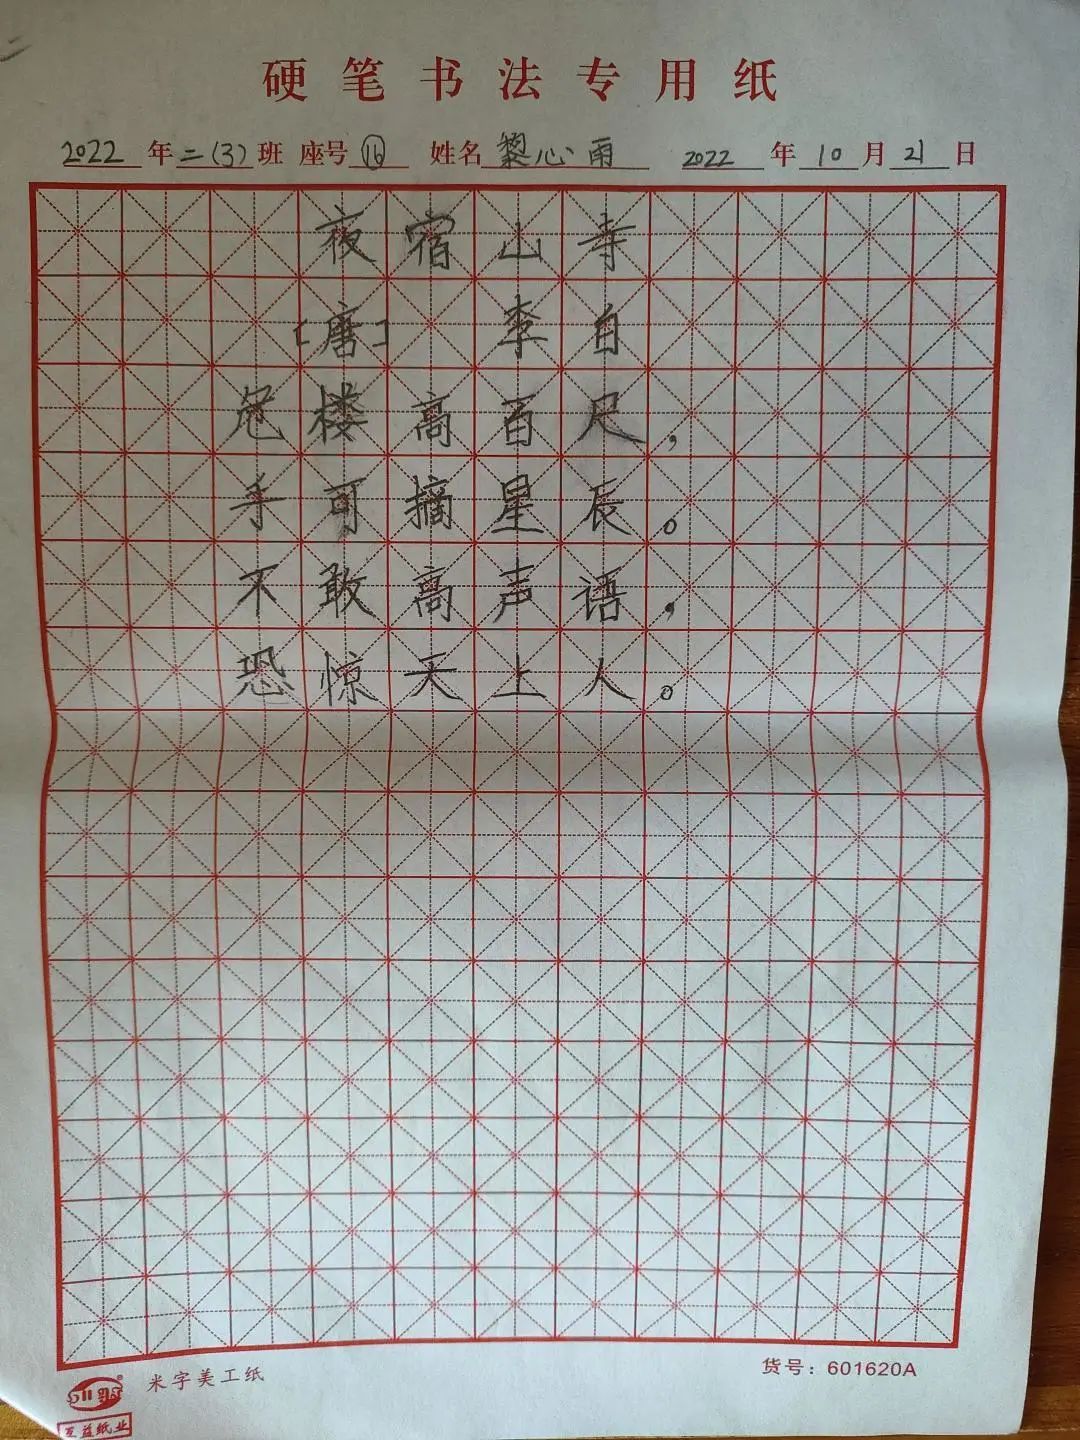 硬笔书法专用纸
2022年二(3)班 座号⑯ 姓名黎心雨 2022年10月21日
夜宿山寺
[唐] 李白
危楼高百尺，
手可摘星辰。
不敢高声语，
恐惊天上人。
米字美工纸
货号：601620A
互益纸业